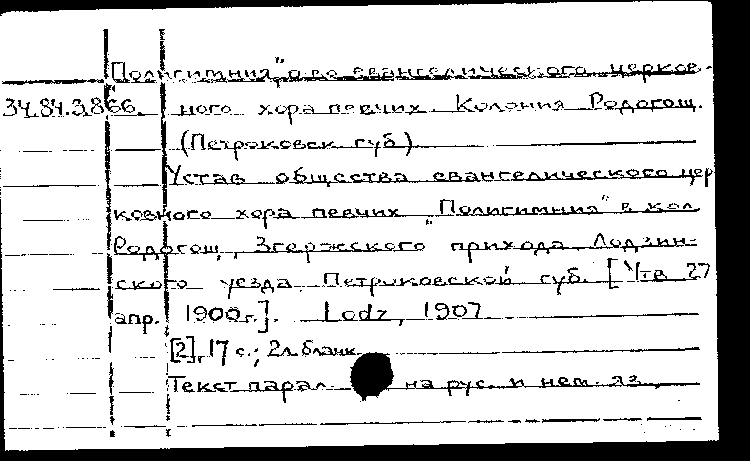 „Полигимния", о-во евангелического церков-
34.84.3.866. ного хора певчих. Колония Родогощ.
(Петроковск. губ.)
Устав общества евангелического цер
ковного хора певчих „Полигимния" в кол.
Родогощ, Згержского прихода Лодзин-
ского уезда Петроковской губ. [Утв. 27
апр. 1900 г.]. Lodz, 1907
[2], 17 с.; 2 л. бланк.
Текст парал. на рус. и нем. яз.